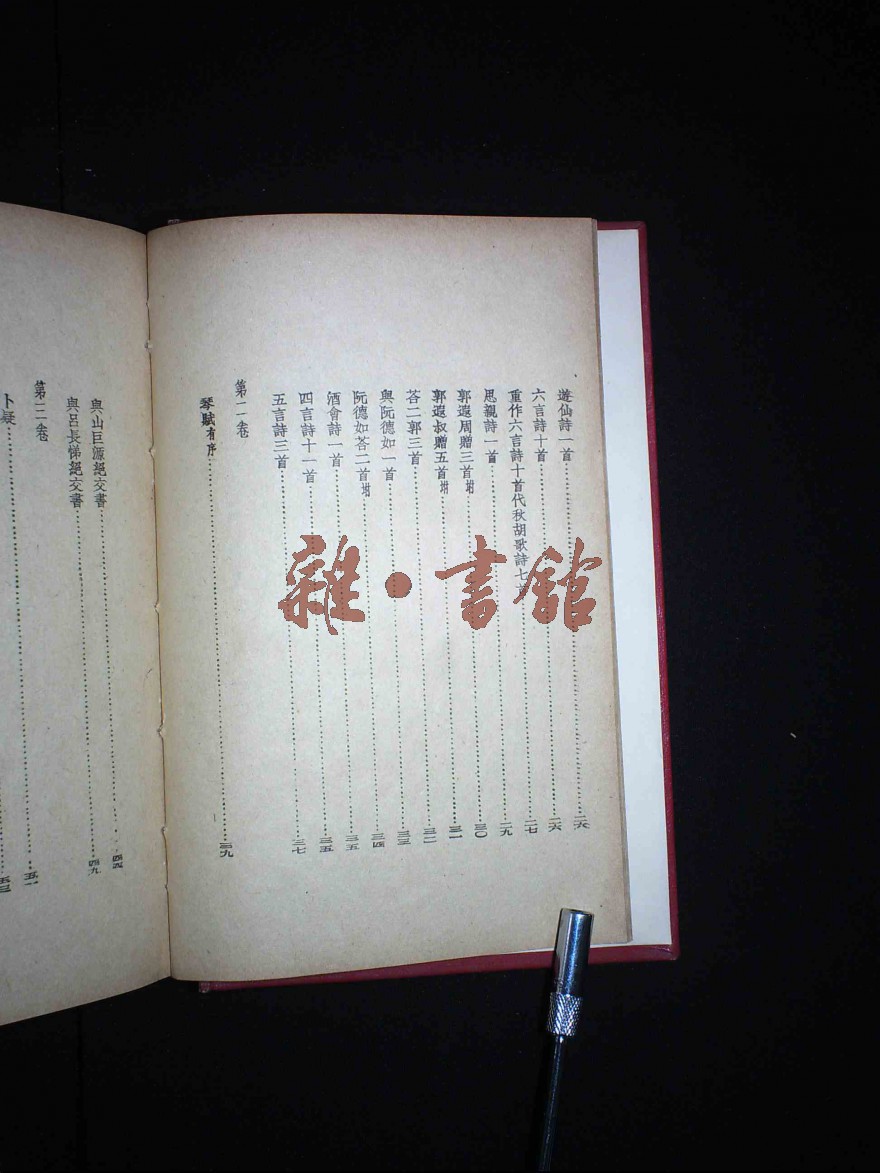 遊仙詩一首……二六
六言詩十首……二六
重作六言詩十首代秋胡歌詩七……二七
思親詩一首……二九
郭遐周贈三首坿……三〇
郭遐叔贈五首坿……三一
荅二郭三首……三二
與阮德如一首……三三
阮德如荅二首坿……三四
酒會詩一首……三五
四言詩十一首……三五
五言詩三首……三七
第二卷
琴賦有序……三九
與山巨源絕交書……四四
與呂長悌絕交書……四九
第三卷
卜疑……五一
雜·書館